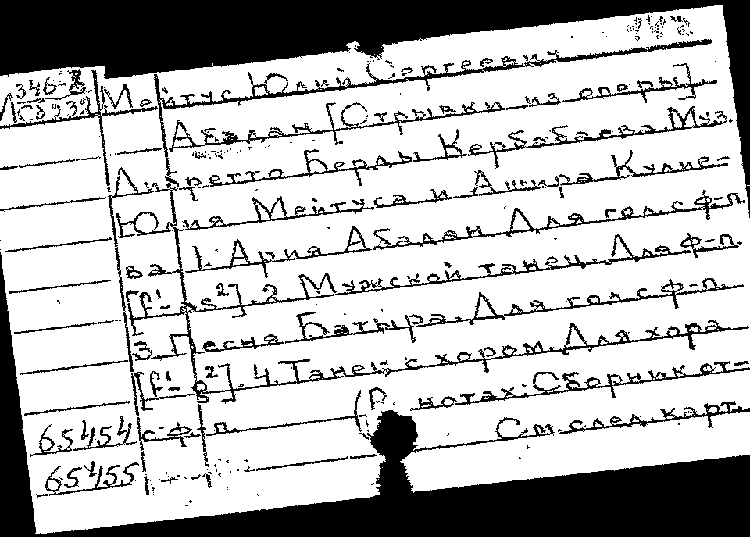 346-8
М СБ232 Мейтус, Юлий Сергеевич
Абадан [Отрывки из оперы].
Либретто Берды Кербабаева. Муз.
Юлия Мейтуса и Ашира Кулие-
ва. 1. Ария Абадан. Для гол. с ф-п.
[f¹-as²]. 2. Мужской танец. Для ф-п.
3. Песня Батыра. Для гол. с ф-п.
[f¹-g²]. 4. Танец с хором. Для хора
с ф-п. (В нотах: Сборник от-
65454
См. след. карт.
65455